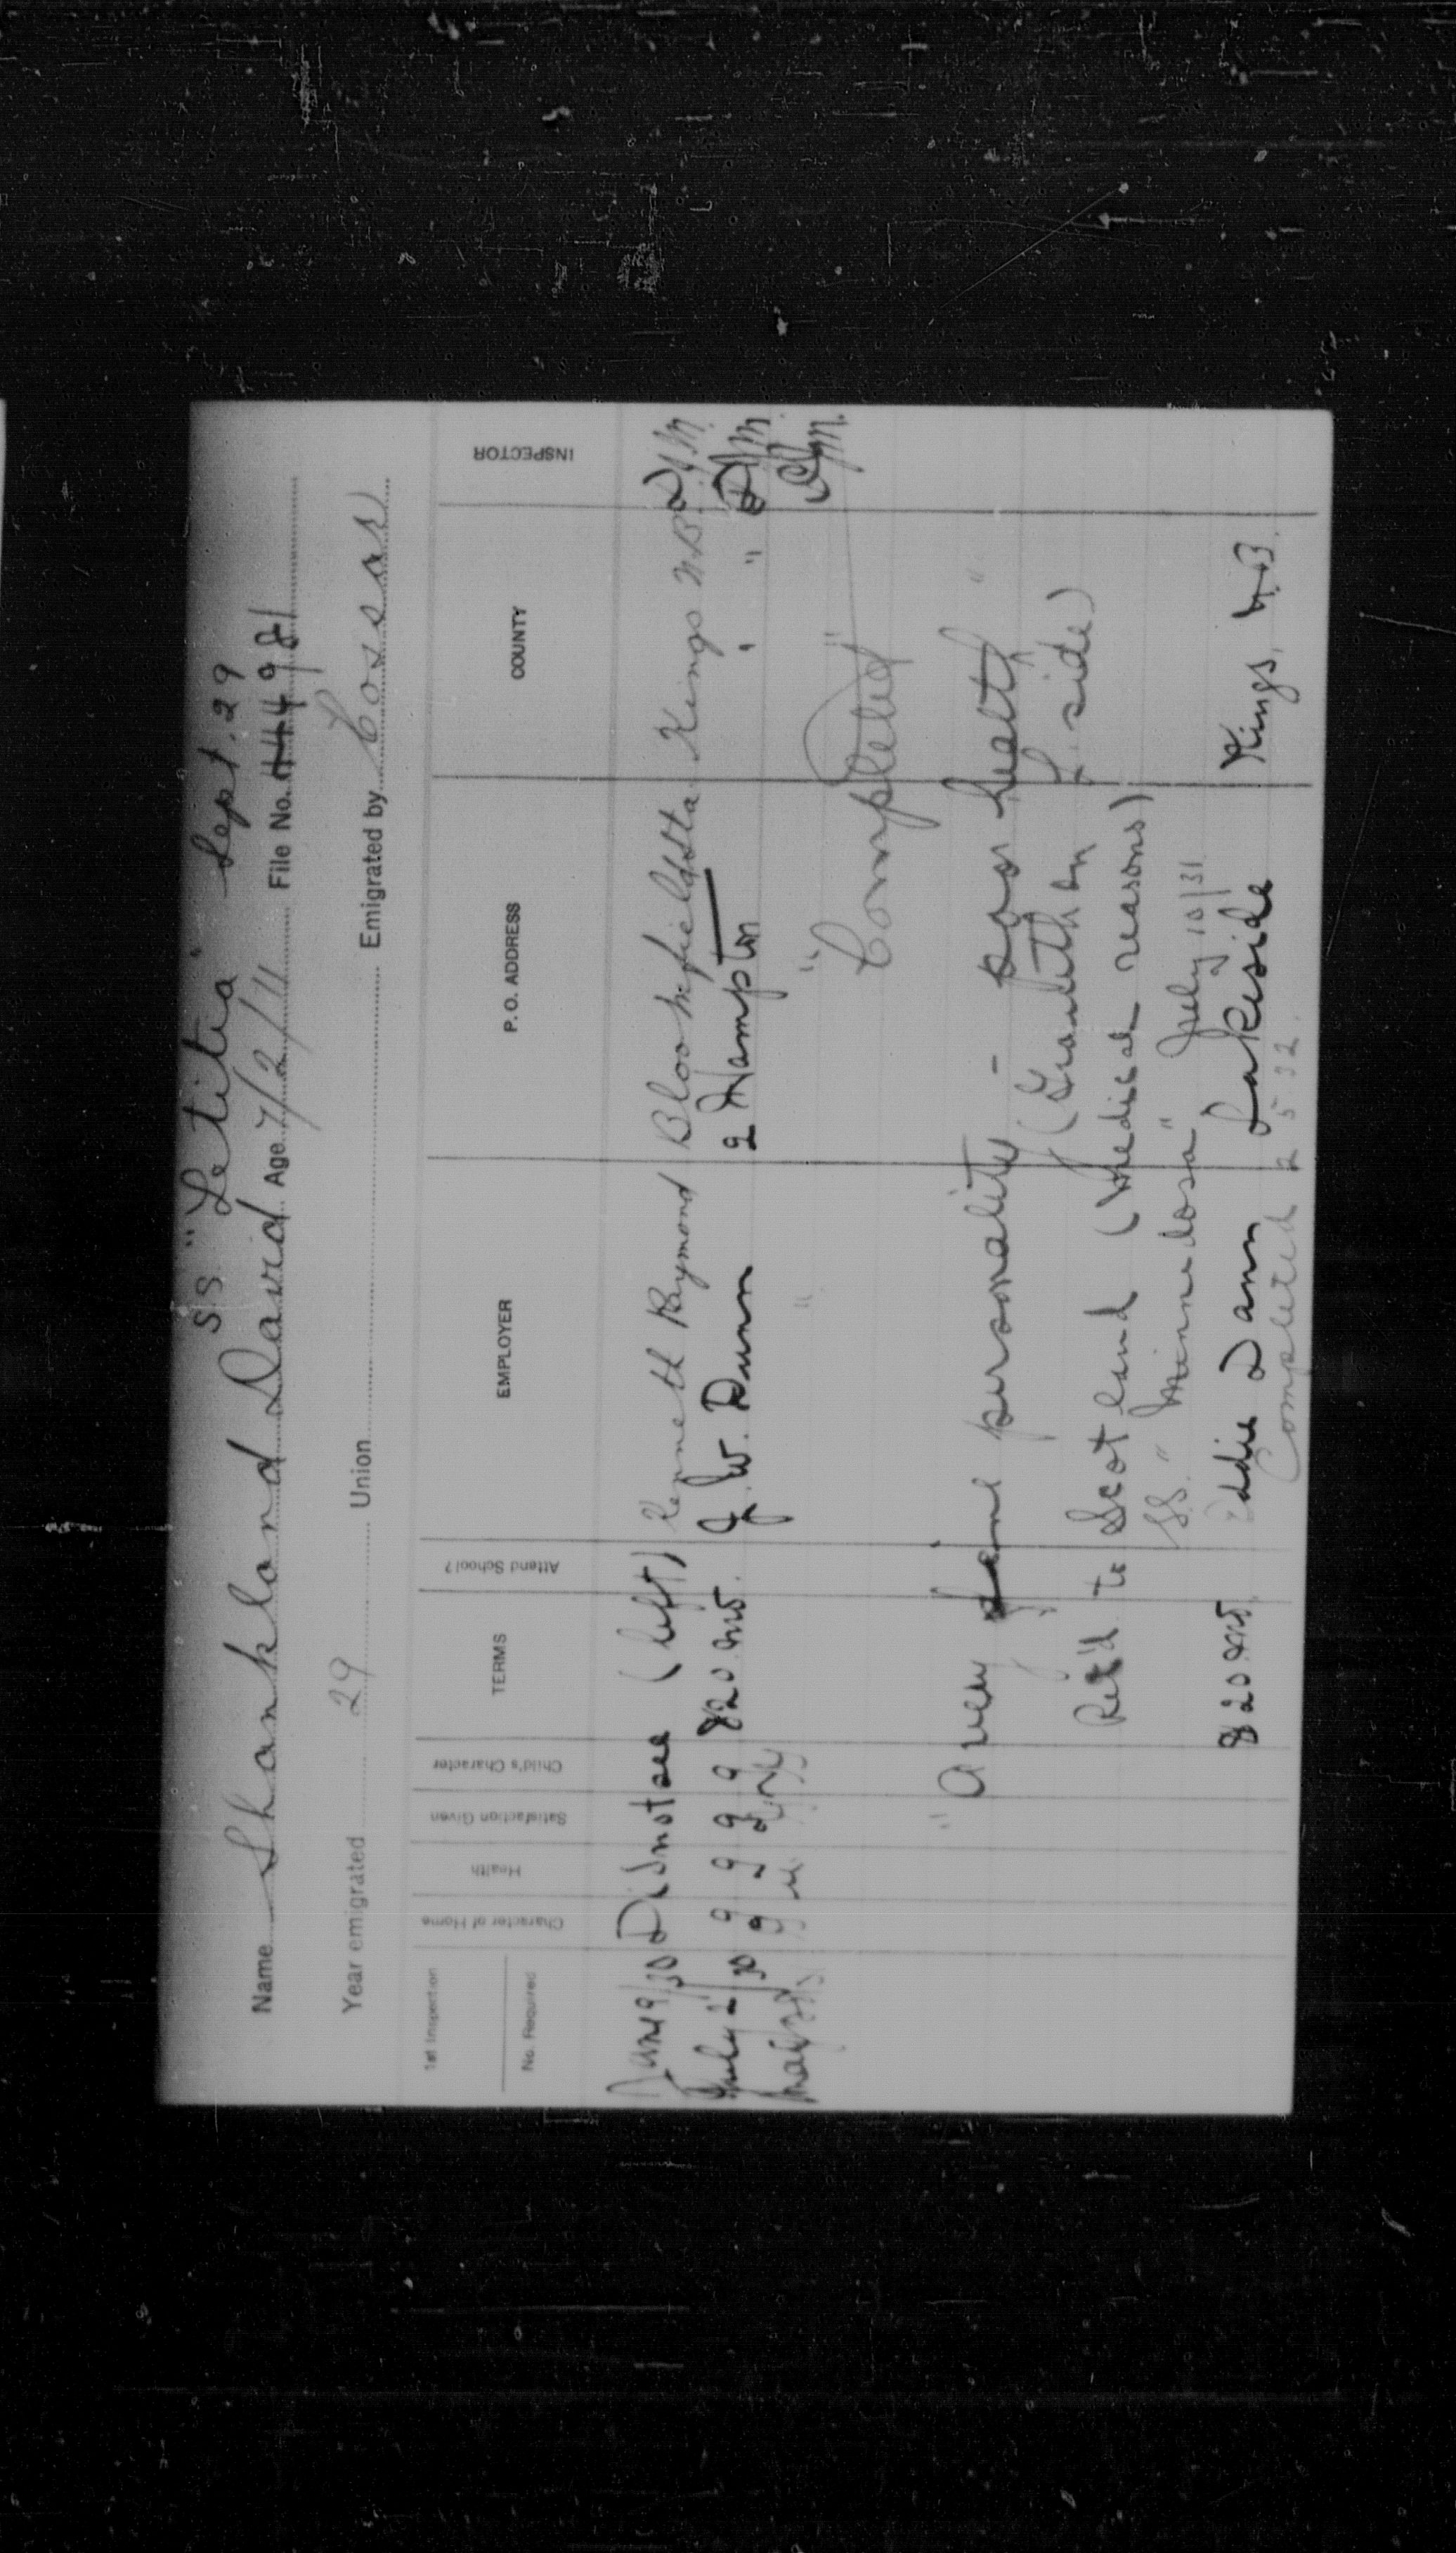 SS "Letitia" Sept. 29
Name Shankland David Age 7/2/11 File No.
Year emigrated 29 Union Emigrated by Cossar
1st Inspection
No. Required
Character of Home
Health
Satisfaction Given
Child's Character
TERMS
Attend School?
EMPLOYER
P. O. ADDRESS
COUNTY
INSPECTOR
Jan 19/30 Did not see (left) Kenneth Raymond Bloomfield Sta. Kings N.B.
July 2/30 g g g g $20. mo. J. W. Dunn Hampton " "
"Completed"
"A very fine personality - poor health "
(Growth on L. side)
Ret'd to Scotland (Medical reasons)
SS. "Minnedosa" July 10/31
$20. mo. Eddie Dann Lakeside Kings, N.B.
Completed 2.5.32.